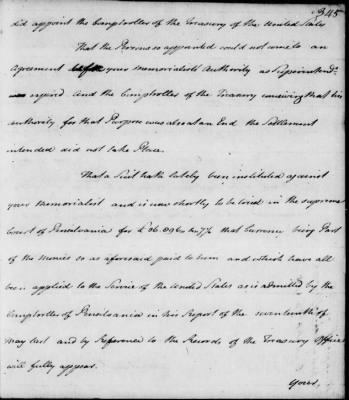 345
did appoint the Comptroller of the Treasury of the United States
That the Persons so appointed could not come to an
Agreement before your Memorialist's Authority as Superintendt.
expired and the Comptroller of the Treasury conceiving that his
authority for that Purpose was also at an End the Settlement
intended did not take Place.
That a Suit hath lately been instituted against
your Memorialist and is now shortly to be tried in the supreme
Court of Pensilvania for that Sum being Part
of the Monies so as aforesaid paid to him and which have all
been applied to the Service of the United States as is admitted by the
Comptroller of Pensilvania in his Report of the seventeenth of
May last and by Reference to the Records of the Treasury Office
will fully appear.
Your